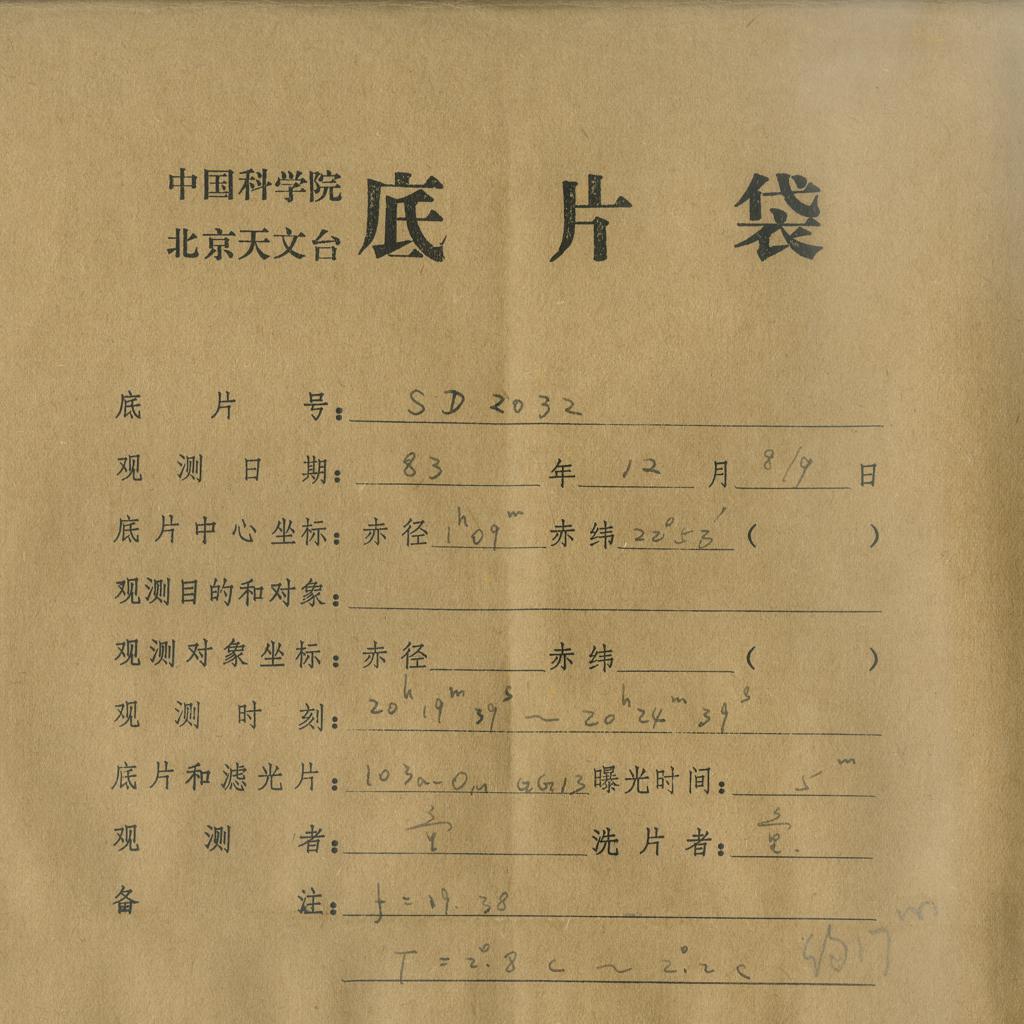 中国科学院
北京天文台 底片袋
底片号: SD 2032
观测日期: 83 年 12 月 8/9 日
底片中心坐标: 赤径 1h09m 赤纬 22°53′ ( )
观测目的和对象:
观测对象坐标: 赤径 赤纬 ( )
观测时刻: 20h19m39s ~ 20h24m39s
底片和滤光片: 103a-O, GG13 曝光时间: 5m
观测者: 洗片者:
备注: f = 19.38
T = 2°.8 c ~ 2°.2 c 约17m